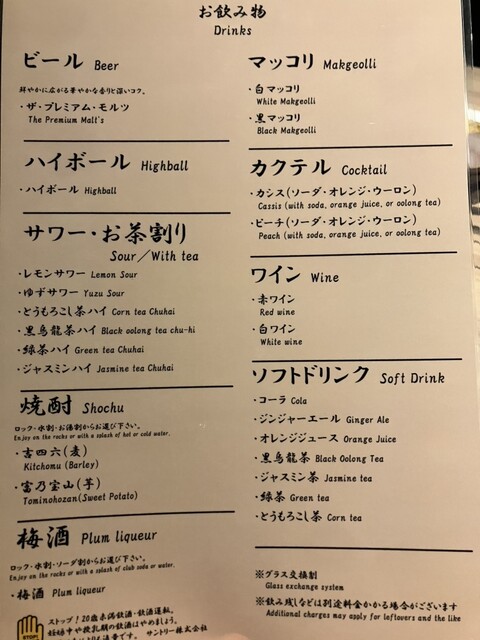 お飲み物
Drinks
ビール Beer
鮮やかに広がる華やかな香りと深いコク。
・ザ・プレミアム・モルツ
The Premium Malt's
ハイボール Highball
・ハイボール Highball
サワー・お茶割り
Sour／With tea
・レモンサワー Lemon Sour
・ゆずサワー Yuzu Sour
・とうもろこし茶ハイ Corn tea Chuhai
・黒烏龍茶ハイ Black oolong tea chu-hi
・緑茶ハイ Green tea Chuhai
・ジャスミンハイ Jasmine tea Chuhai
焼酎 Shochu
ロック・水割・お湯割からお選び下さい。
Enjoy on the rocks or with a splash of hot or cold water.
・吉四六(麦)
Kitchomu (Barley)
・富乃宝山(芋)
Tominohozan(Sweet Potato)
梅酒 Plum liqueur
ロック・水割・ソーダ割からお選び下さい。
Enjoy on the rocks or with a splash of club soda or water.
・梅酒 Plum liqueur
STOP!
ストップ！20歳未満飲酒・飲酒運転。
妊娠中や授乳期の飲酒はやめましょう。
サントリー株式会社
マッコリ Makgeolli
・白マッコリ
White Makgeolli
・黒マッコリ
Black Makgeolli
カクテル Cocktail
・カシス(ソーダ・オレンジ・ウーロン)
Cassis (with soda, orange juice, or oolong tea)
・ピーチ(ソーダ・オレンジ・ウーロン)
Peach (with soda, orange juice, or oolong tea)
ワイン Wine
・赤ワイン
Red wine
・白ワイン
White wine
ソフトドリンク Soft Drink
・コーラ Cola
・ジンジャーエール Ginger Ale
・オレンジジュース Orange Juice
・黒烏龍茶 Black Oolong Tea
・ジャスミン茶 Jasmine tea
・緑茶 Green tea
・とうもろこし茶 Corn tea
※グラス交換制
Glass exchange system
※飲み残しなどは別途料金かかる場合がございます
Additional charges may apply for leftovers and the like